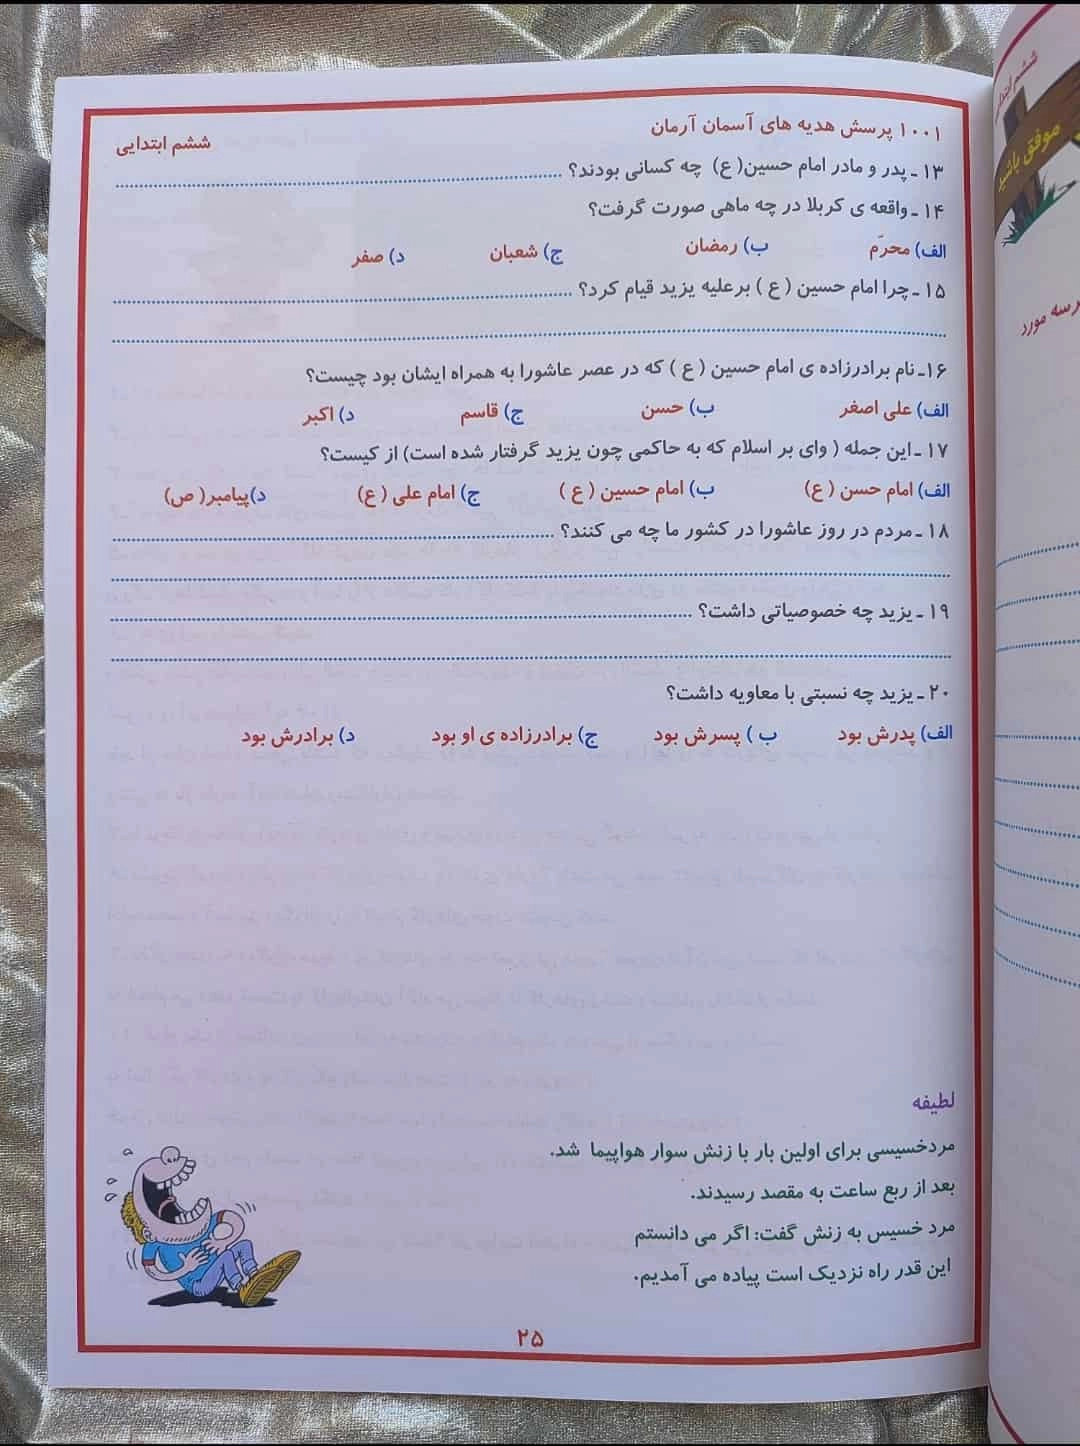 ۱۰۰۱ پرسش هدیه های آسمان آرمان
ششم ابتدایی
۱۳ ـ پدر و مادر امام حسین( ع) چه کسانی بودند؟
۱۴ ـ واقعه ی کربلا در چه ماهی صورت گرفت؟
الف) محرّم ب) رمضان ج) شعبان د) صفر
۱۵ ـ چرا امام حسین ( ع ) برعلیه یزید قیام کرد؟
۱۶ـ نام برادرزاده ی امام حسین ( ع ) که در عصر عاشورا به همراه ایشان بود چیست؟
الف) علی اصغر ب) حسن ج) قاسم د) اکبر
۱۷ ـ این جمله ( وای بر اسلام که به حاکمی چون یزید گرفتار شده است) از کیست؟
الف) امام حسن ( ع) ب) امام حسین ( ع ) ج) امام علی ( ع) د)پیامبر( ص)
۱۸ ـ مردم در روز عاشورا در کشور ما چه می کنند؟
۱۹ ـ یزید چه خصوصیاتی داشت؟
۲۰ ـ یزید چه نسبتی با معاویه داشت؟
الف) پدرش بود ب ) پسرش بود ج) برادرزاده ی او بود د) برادرش بود
لطیفه
مردخسیسی برای اولین بار با زنش سوار هواپیما شد.
بعد از ربع ساعت به مقصد رسیدند.
مرد خسیس به زنش گفت: اگر می دانستم
این قدر راه نزدیک است پیاده می آمدیم.
۲۵
ششم ابتدایی
موفق باشید
مورد